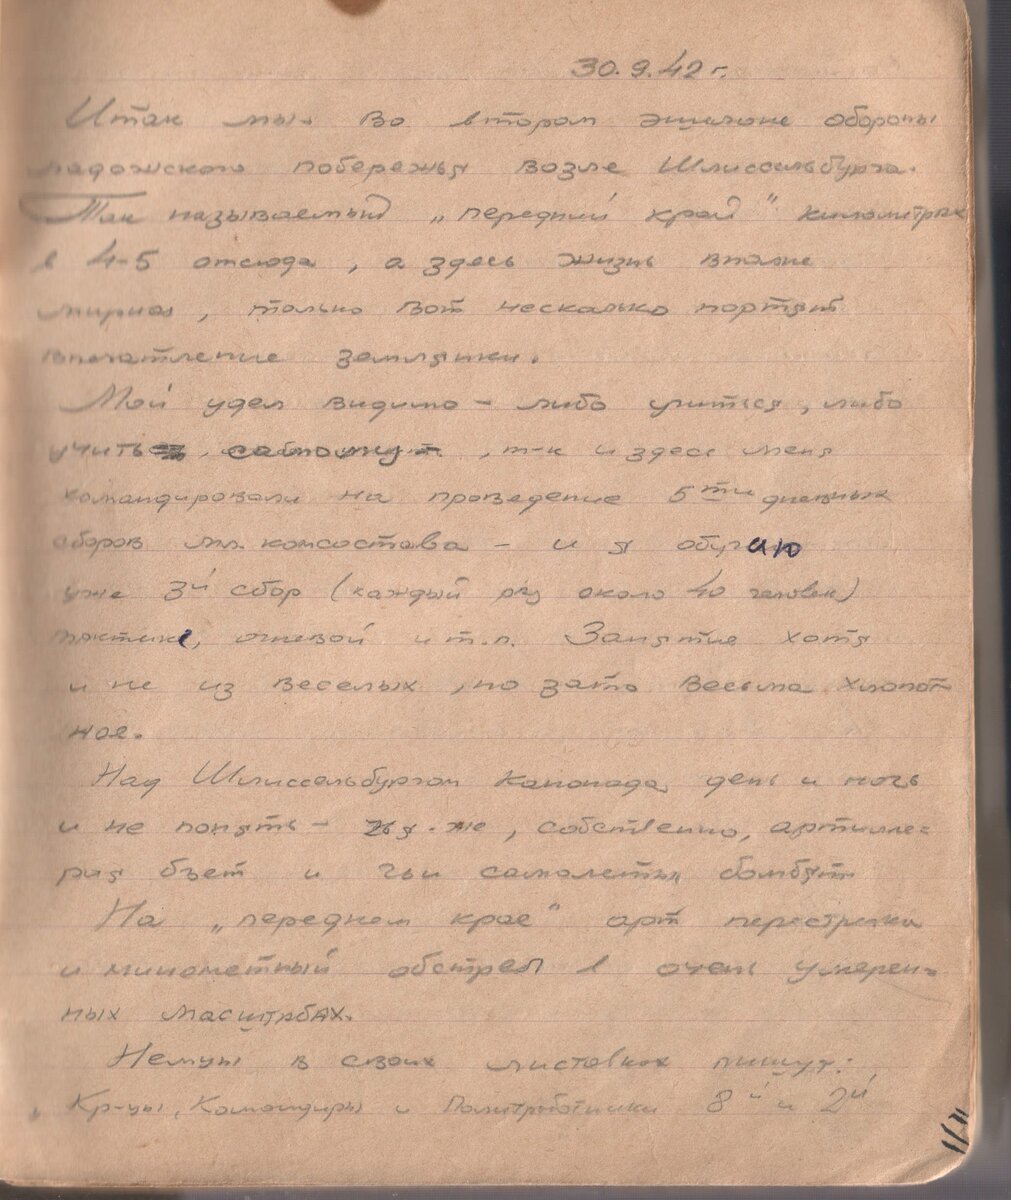 30.9.42 г.
Итак мы. во втором эшелоне обороны
ладожского побережья возле Шлиссельбурга.
Так называемый „передний край" километрах
в 4-5 отсюда, а здесь жизнь вполне
мирная, только вот несколько портят
впечатление землянки.
Мой удел видимо - либо учиться, либо
учить , т-к и здесь меня
командировали на проведение 5ти дневных
сборов мл. комсостава - и я обучаю
уже 3й сбор (каждый раз около 40 человек)
тактике, огневой и т.п. Занятие хотя
и не из веселых, но зато весьма хлопот
ное.
Над Шлиссельбургом канонада день и ночь
и не понять - чья-же, собственно, артилле=
рия бьет и чьи самолеты бомбят
На „переднем крае" арт перестрелки
и минометный обстрел в очень умерен=
ных масштабах.
Немцы в своих листовках пишут:
„Кр-цы, Командиры и Политработники 8й и 2й